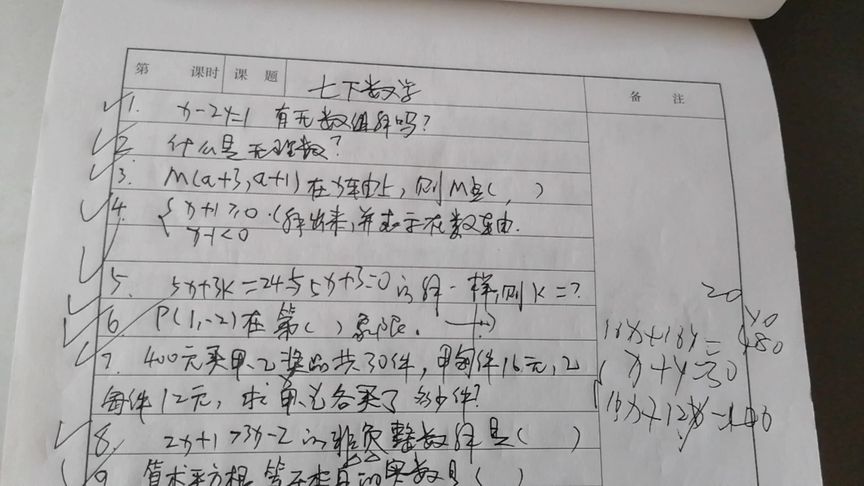 第 课时 课 题 备 注
七下数学
1. x-2y=1 有无数组解吗?
2. 什么是无理数?
3. M(a+3,a+1)在x轴上,则M点( , )
4. { x+1≥0 (解出来,并表示在数轴.
x-1<0
5. 5x+3k=24与5x+3=0的解一样,则k=?
6. P(1,-2)在第( )象限.
7. 400元买甲、乙奖品共30件,甲每件16元,乙
每件12元,求甲、乙各买了多少件?
8. 2x+1>3x-2的非负整数解是( )
9. 算术平方根等于本身的实数是( )
20
480
x+y=30